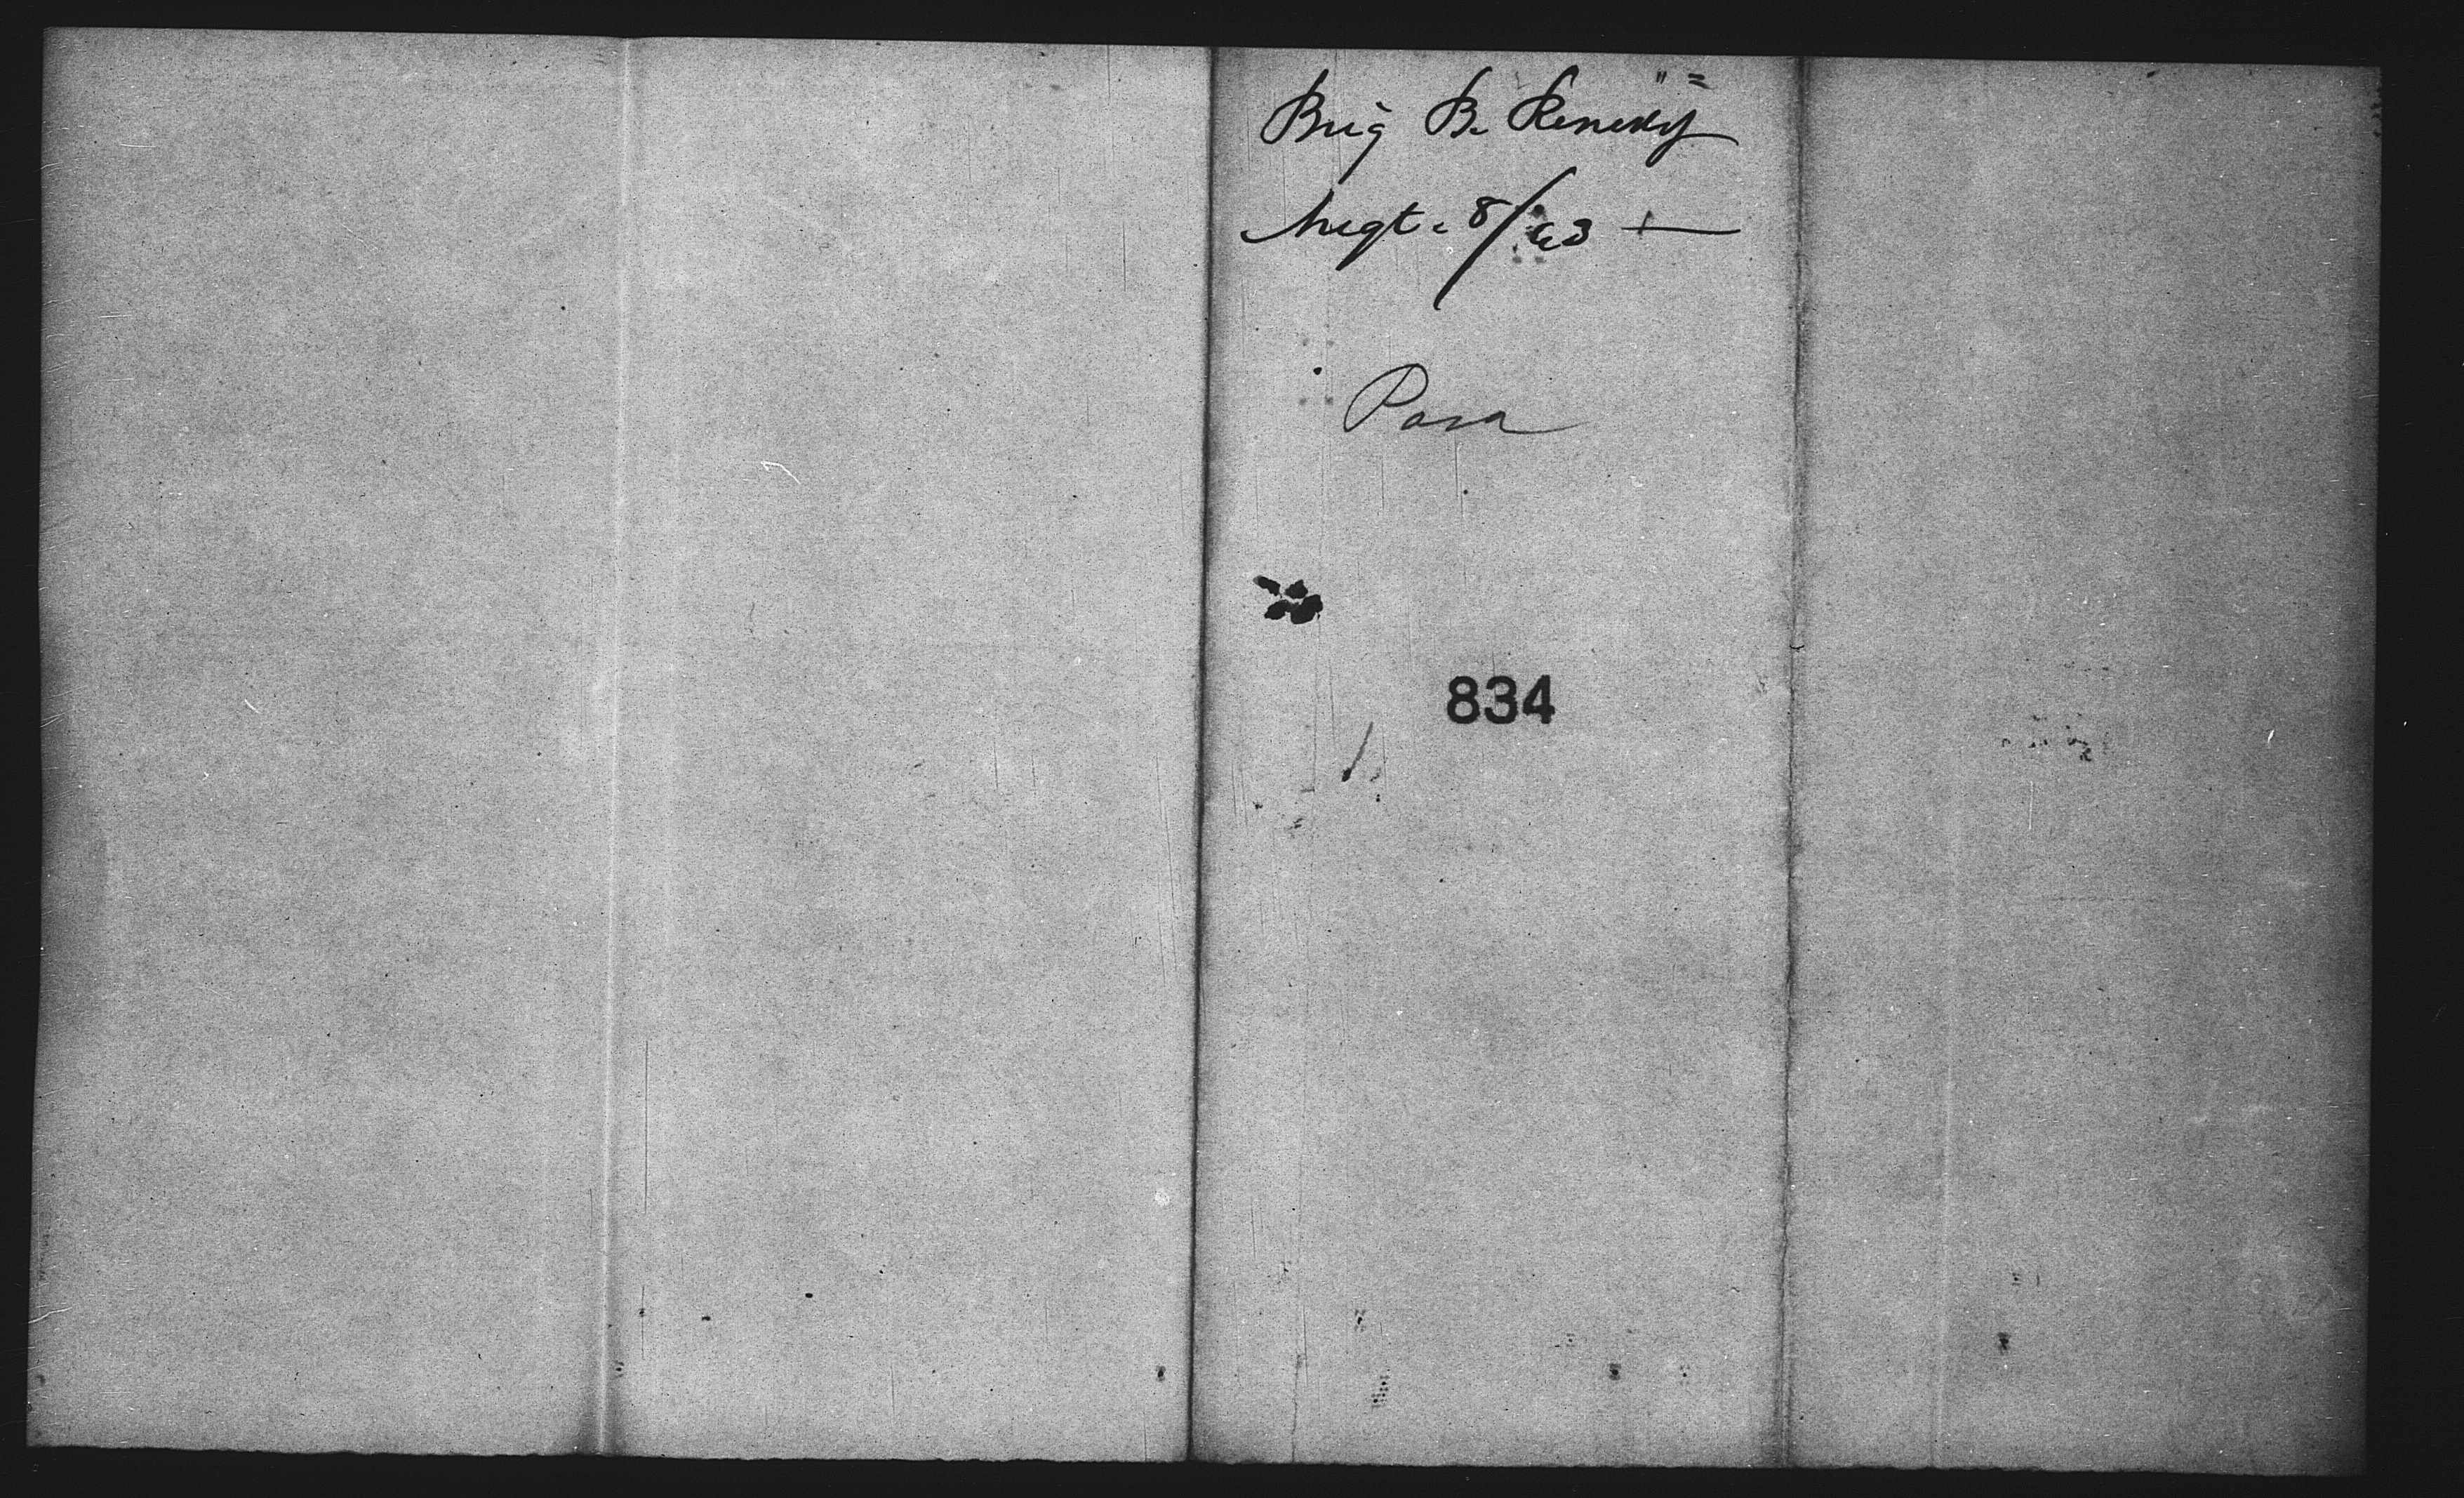 Brig B. Kenedy
Augt. 8/63
Para
834